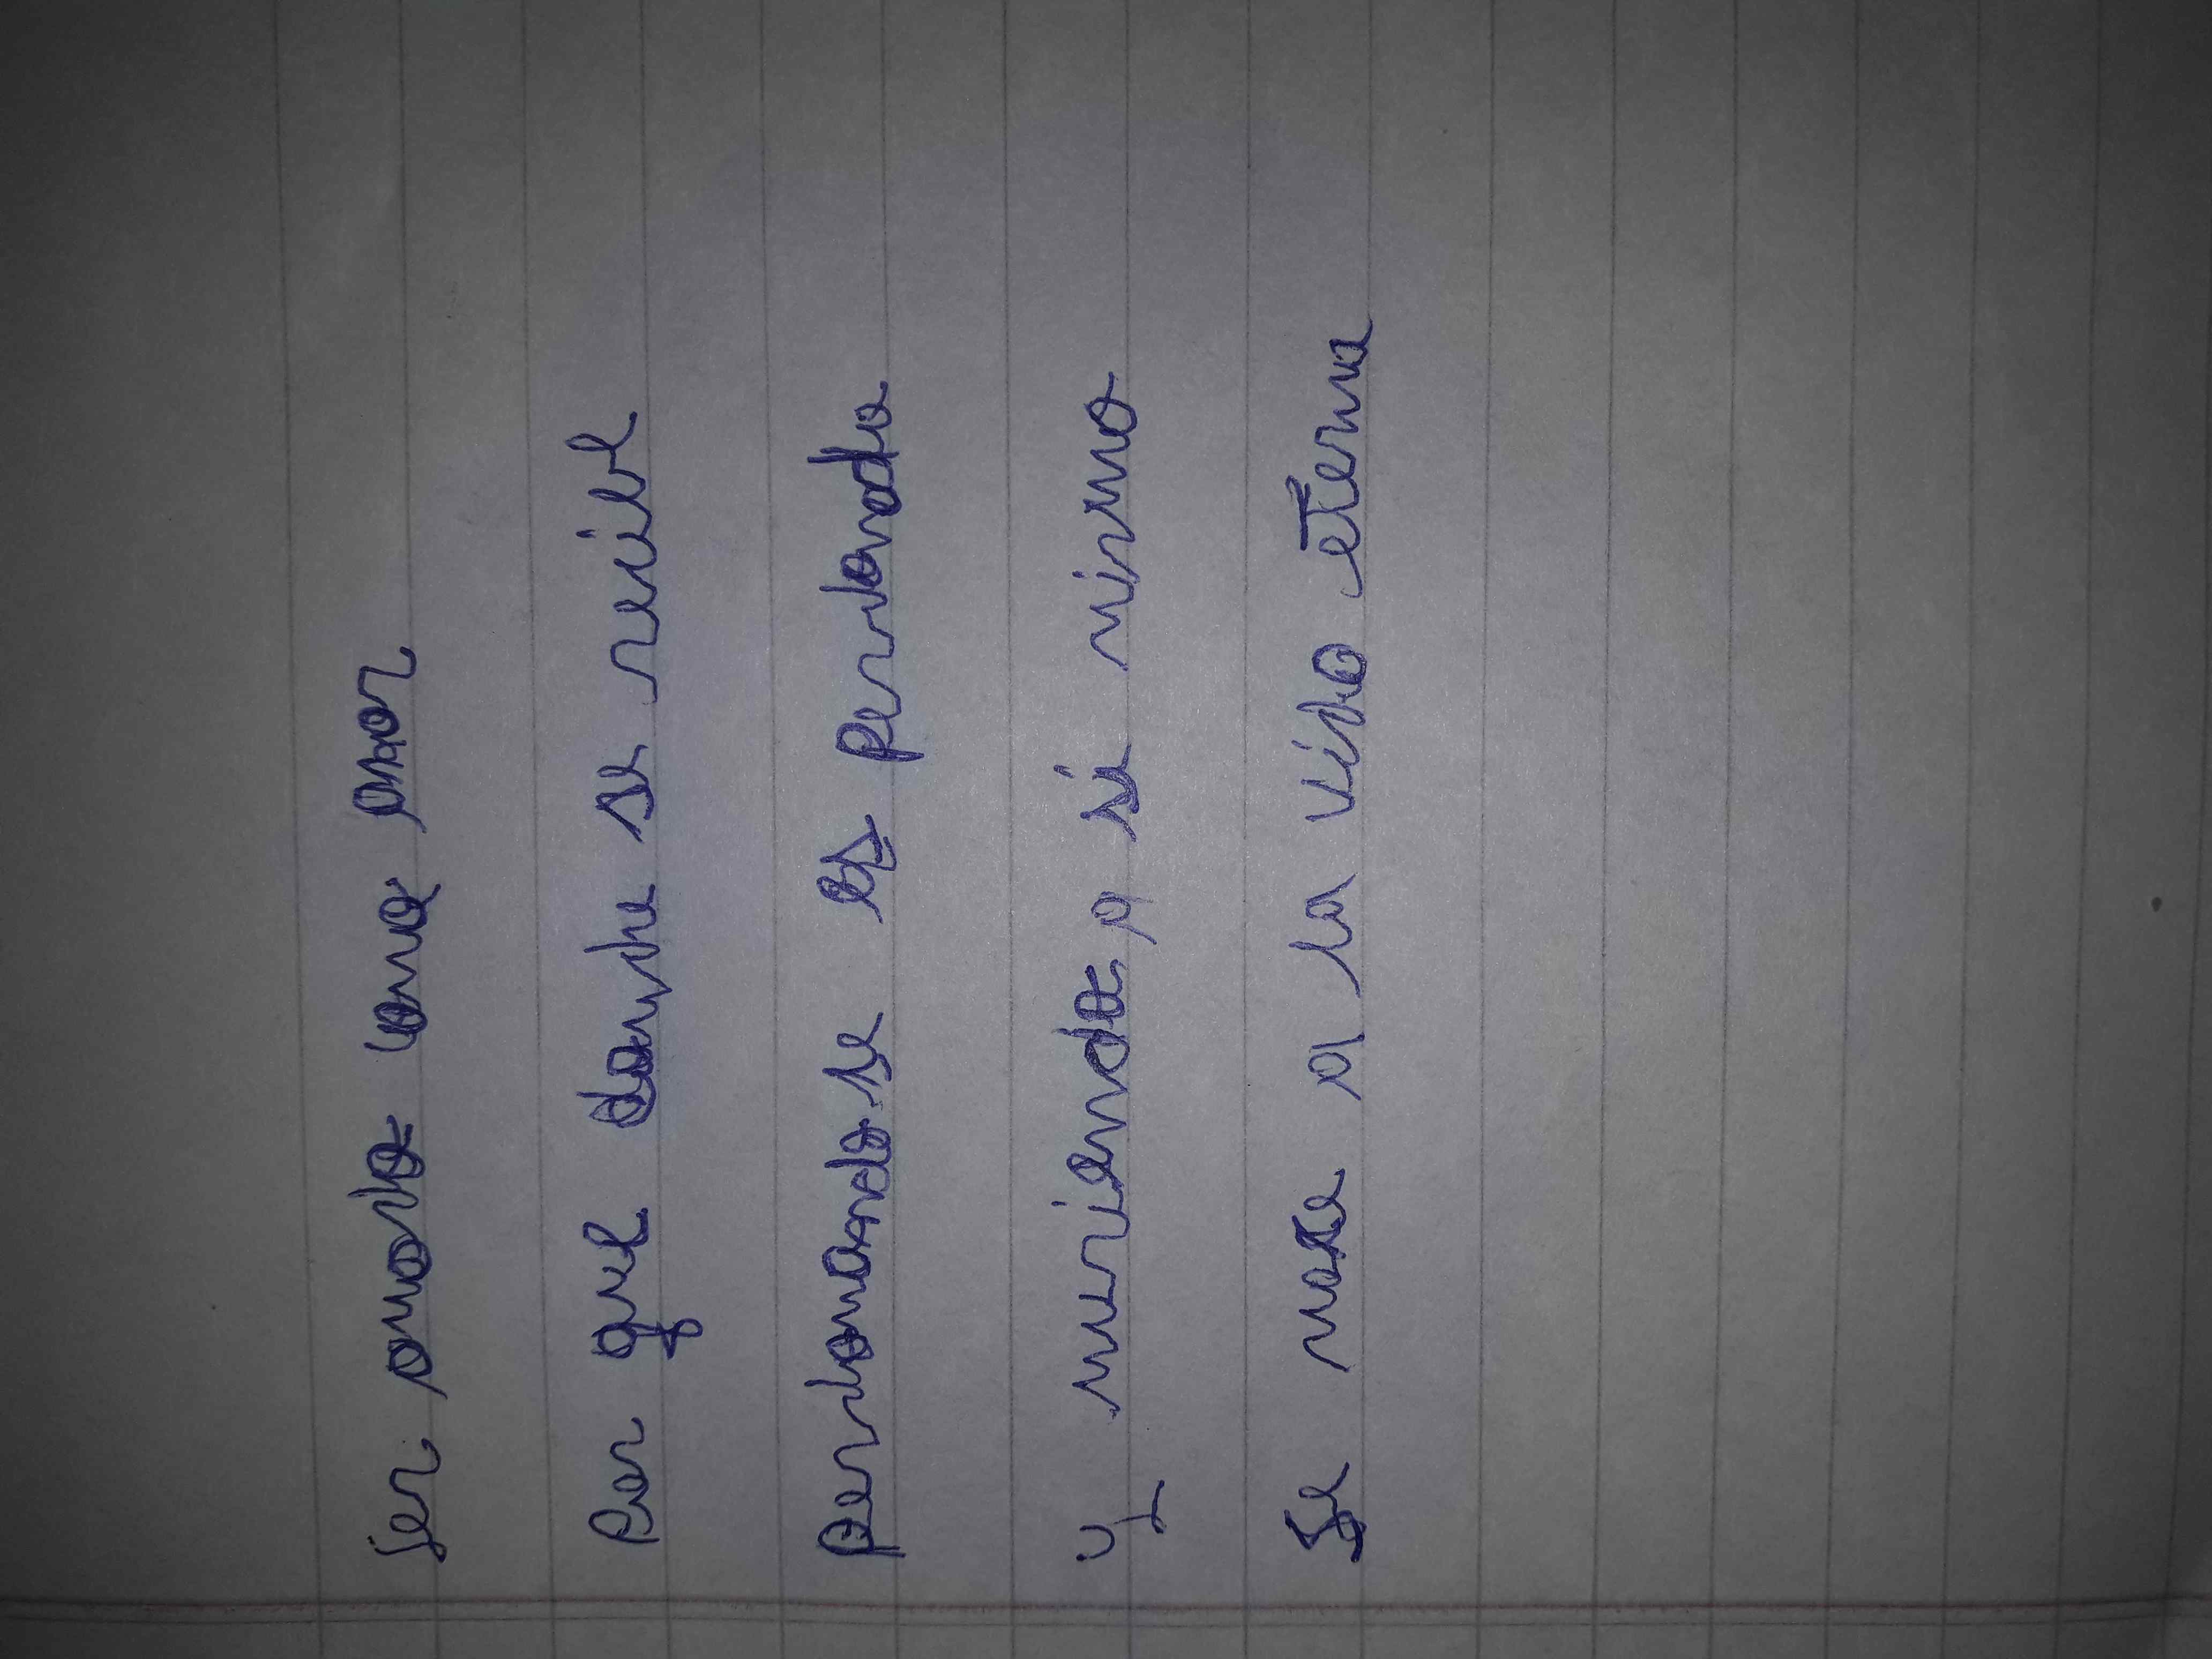 Ser amado como amor
Por que dando se recibe
perdonando se es perdonado
y muriendo, a si mismo
Se nace a la vida eterna